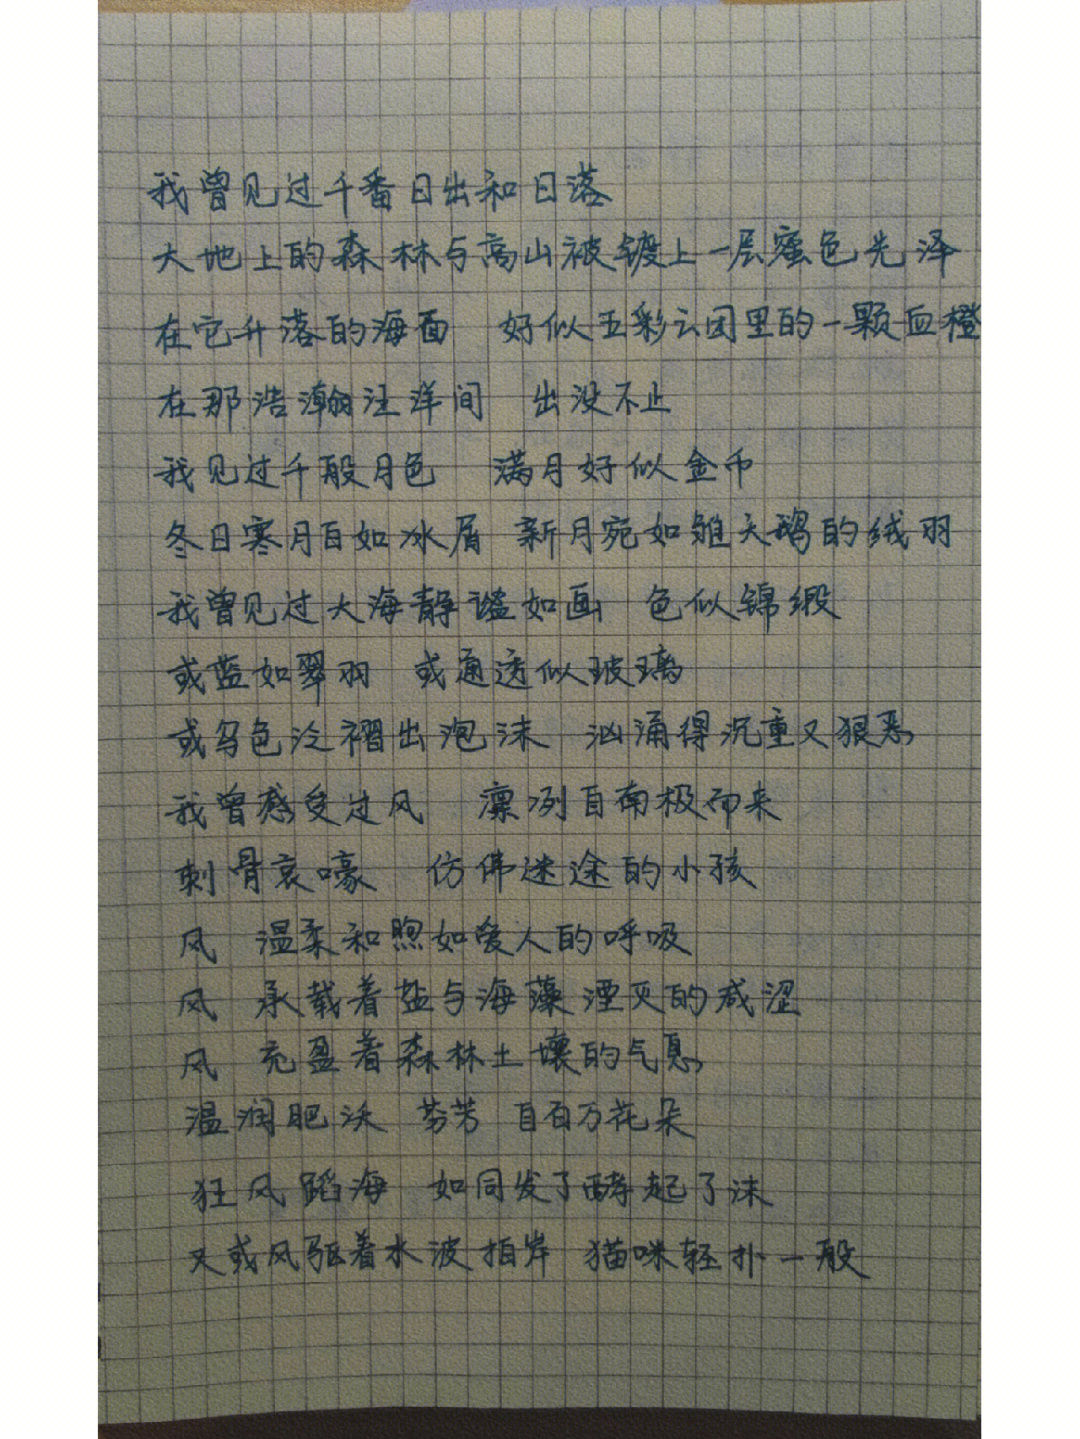 我曾见过千番日出和日落
大地上的森林与高山被镀上一层蜜色光泽
在它升落的海面 好似五彩云团里的一颗血橙
在那浩瀚汪洋间 出没不止
我见过千般月色 满月好似金币
冬日寒月白如冰屑 新月宛如雏天鹅的绒羽
我曾见过大海静谧如画 色似锦缎
或蓝如翠羽 或通透似玻璃
或乌色泠褶出泡沫 汹涌得沉重又狠恶
我曾感受过风 凛冽自南极而来
刺骨哀嚎 仿佛迷途的小孩
风 温柔和煦如爱人的呼吸
风 承载着盐与海藻湮灭的咸涩
风 充盈着森林土壤的气息
温润肥沃 芬芳 自百万花朵
狂风蹈海 如同发了酵起了沫
又或风驱着水波拍岸 猫咪轻扑一般